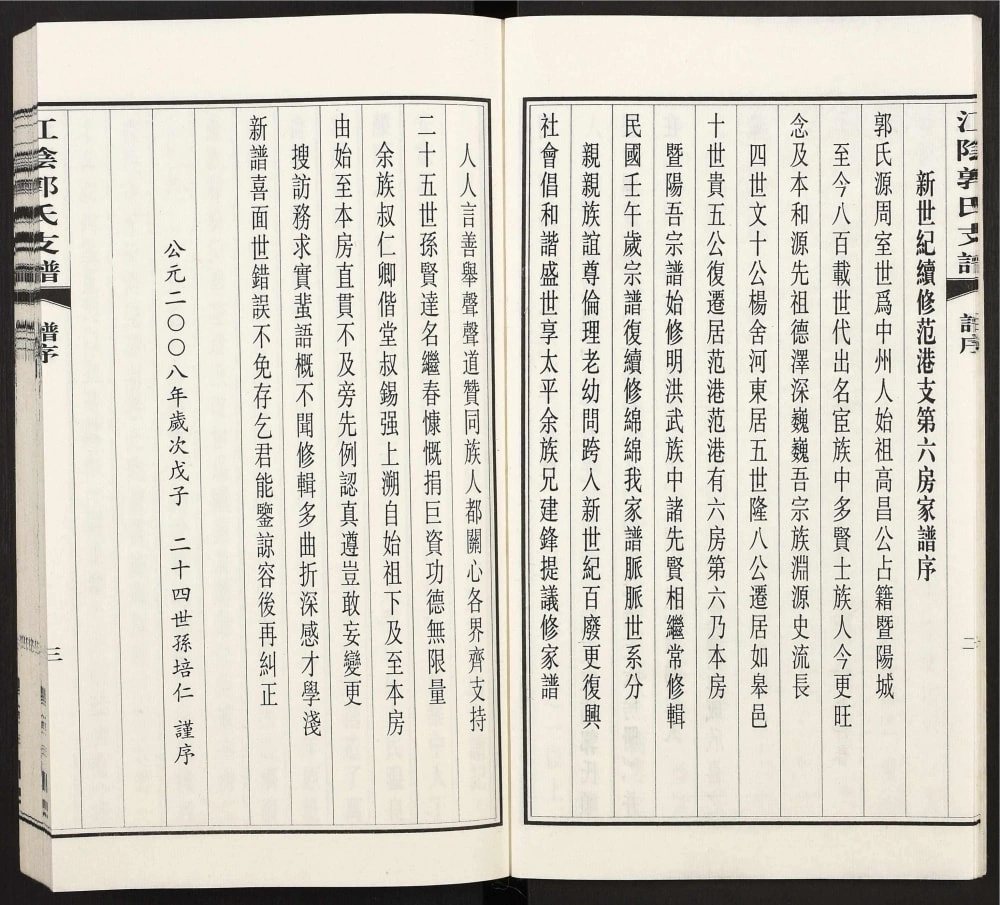 江陰郭氏支譜
譜序
二
新世紀續修范港支第六房家譜序
郭氏源周室世爲中州人始祖高昌公占籍暨陽城
至今八百載世代出名宦族中多賢士族人今更旺
念及本和源先祖德澤深巍巍吾宗族淵源史流長
四世文十公楊舍河東居五世隆八公遷居如皋邑
十世貴五公復遷居范港范港有六房第六乃本房
暨陽吾宗譜始修明洪武族中諸先賢相繼常修輯
民國壬午歲宗譜復續修綿綿我家譜脈脈世系分
親親族誼尊倫理老幼問跨入新世紀百廢更復興
社會倡和諧盛世享太平余族兄建鋒提議修家譜
人人言善舉聲聲道贊同族人都關心各界齊支持
二十五世孫賢達名繼春慷慨捐巨資功德無限量
余族叔仁卿偕堂叔錫强上溯自始祖下及至本房
由始至本房直貫不及旁先例認真遵豈敢妄變更
搜訪務求實蜚語概不聞修輯多曲折深感才學淺
新譜喜面世錯誤不免存乞君能鑒諒容後再糾正
公元二〇〇八年歲次戊子 二十四世孫培仁 謹序
江陰郭氏支譜
譜序
三